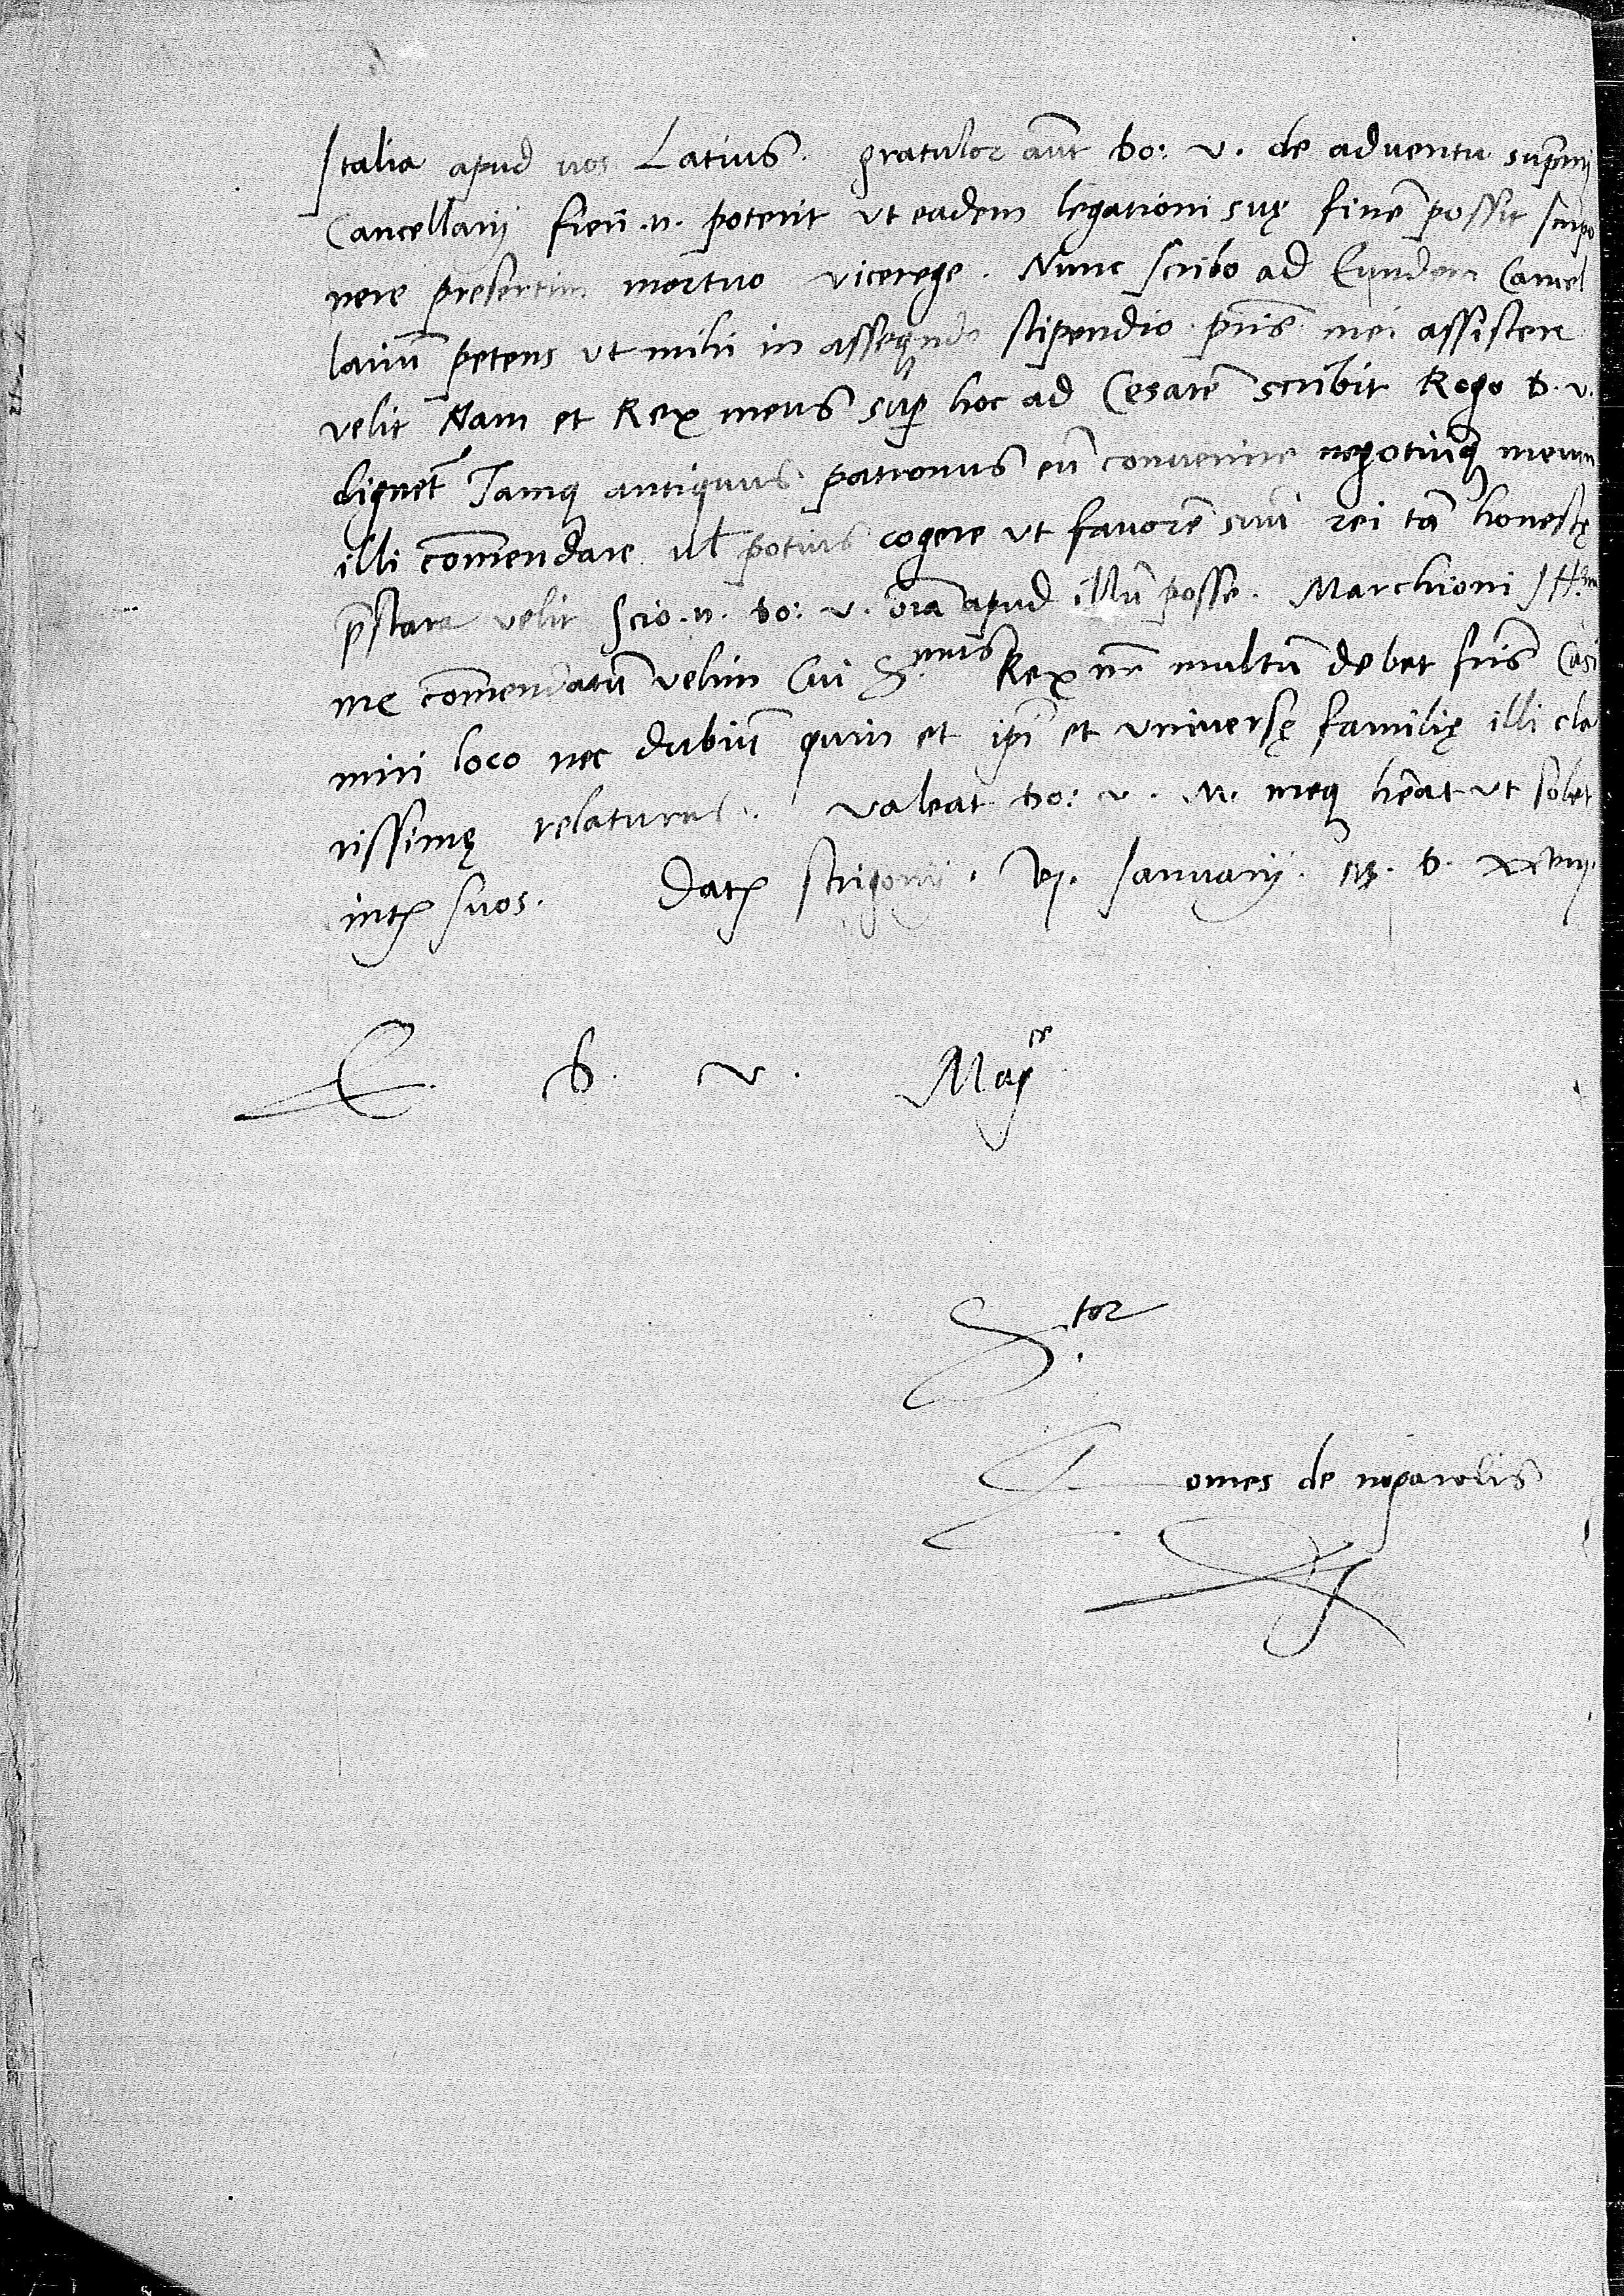 Italia apud vos Latius. gratulor aūt do: v. de adventu supͫi
Cancellarij fieri .n. poterit ut eadem legationi suę finē possit
nere presertim mortuo vicerege. Nunc scribo ad Eundem Cancel
lariū petens ut mihi in asseqndo stipendio pris mei assistere
velit Nam et Rex meus sup hoc ad Cesarē scribit Rogo d. v.
dignet Tamq antiquus patronus eū convenire negotiūq meum
illi comēndare ul potius cogere ut favorē suū rei tā honestę
p̄stare velit Scio .n. do: v. oīa apud illū posse. Marchioni Ill.mo
me comēndatū velim Cui S.mus Rex nr̄ multū debet fr̄is Casi
miri loco nec dubiū quin et ip̄i et universę familię illi cla
rissimę relaturus. valeat do: v. M. meq hēat ut solet
inter suos. Dat Strigonij. vj. Januarij. M. D. xxviij.
E. D. v. Mag.ce
S.tor
Comes de nogarolis